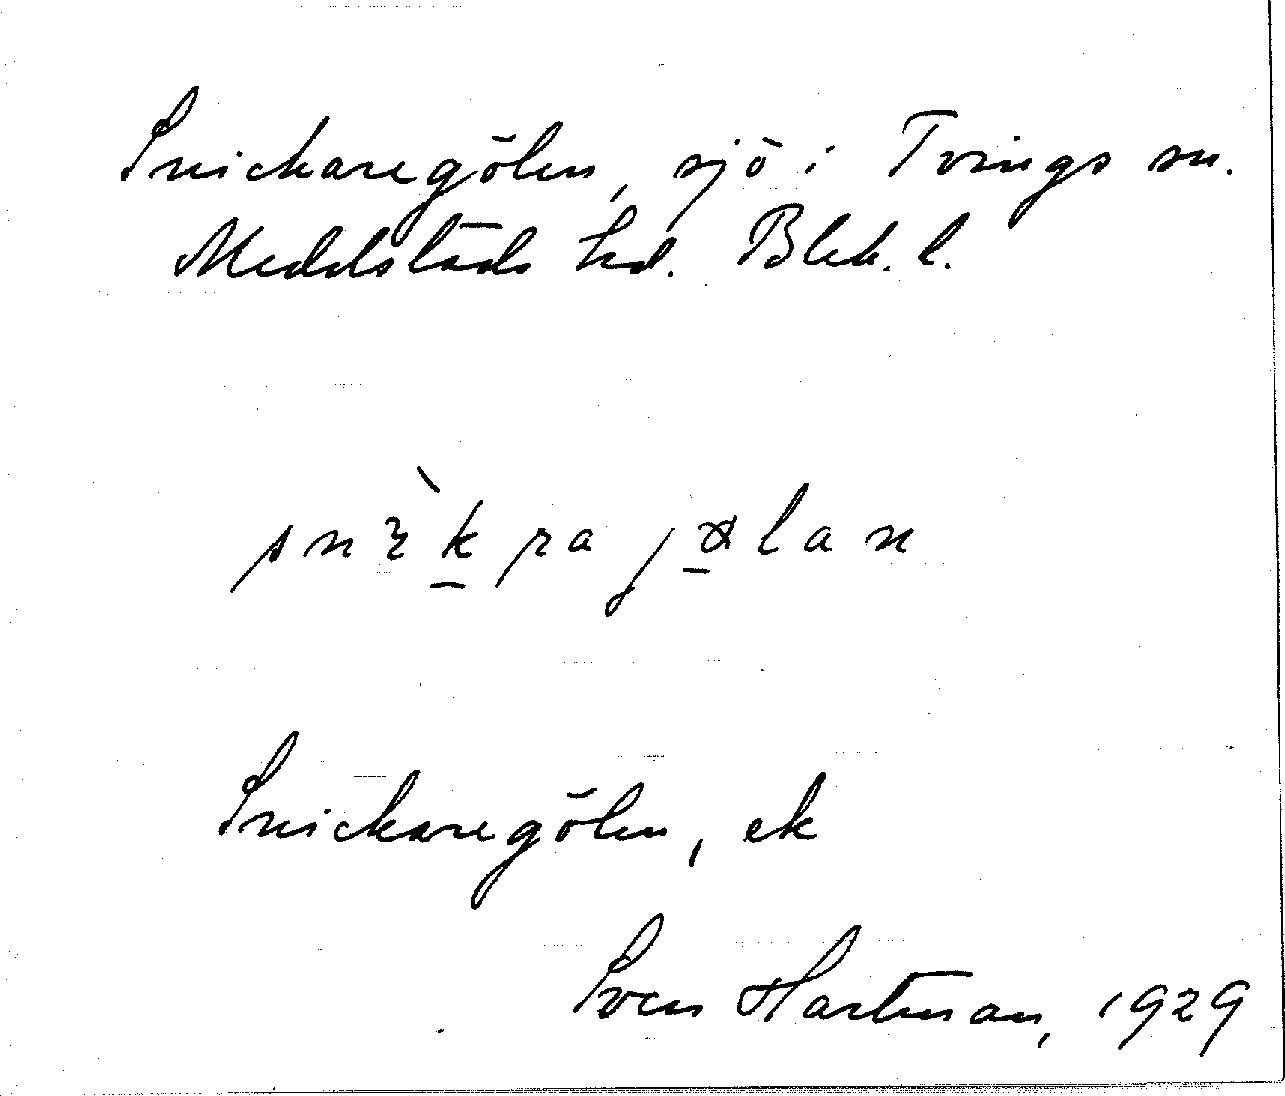 Snickaregölen, sjö i Tvings sn.
Medelstads hd. Blek. l.
Snickaregölen, ek
Sven Hartman, 1929